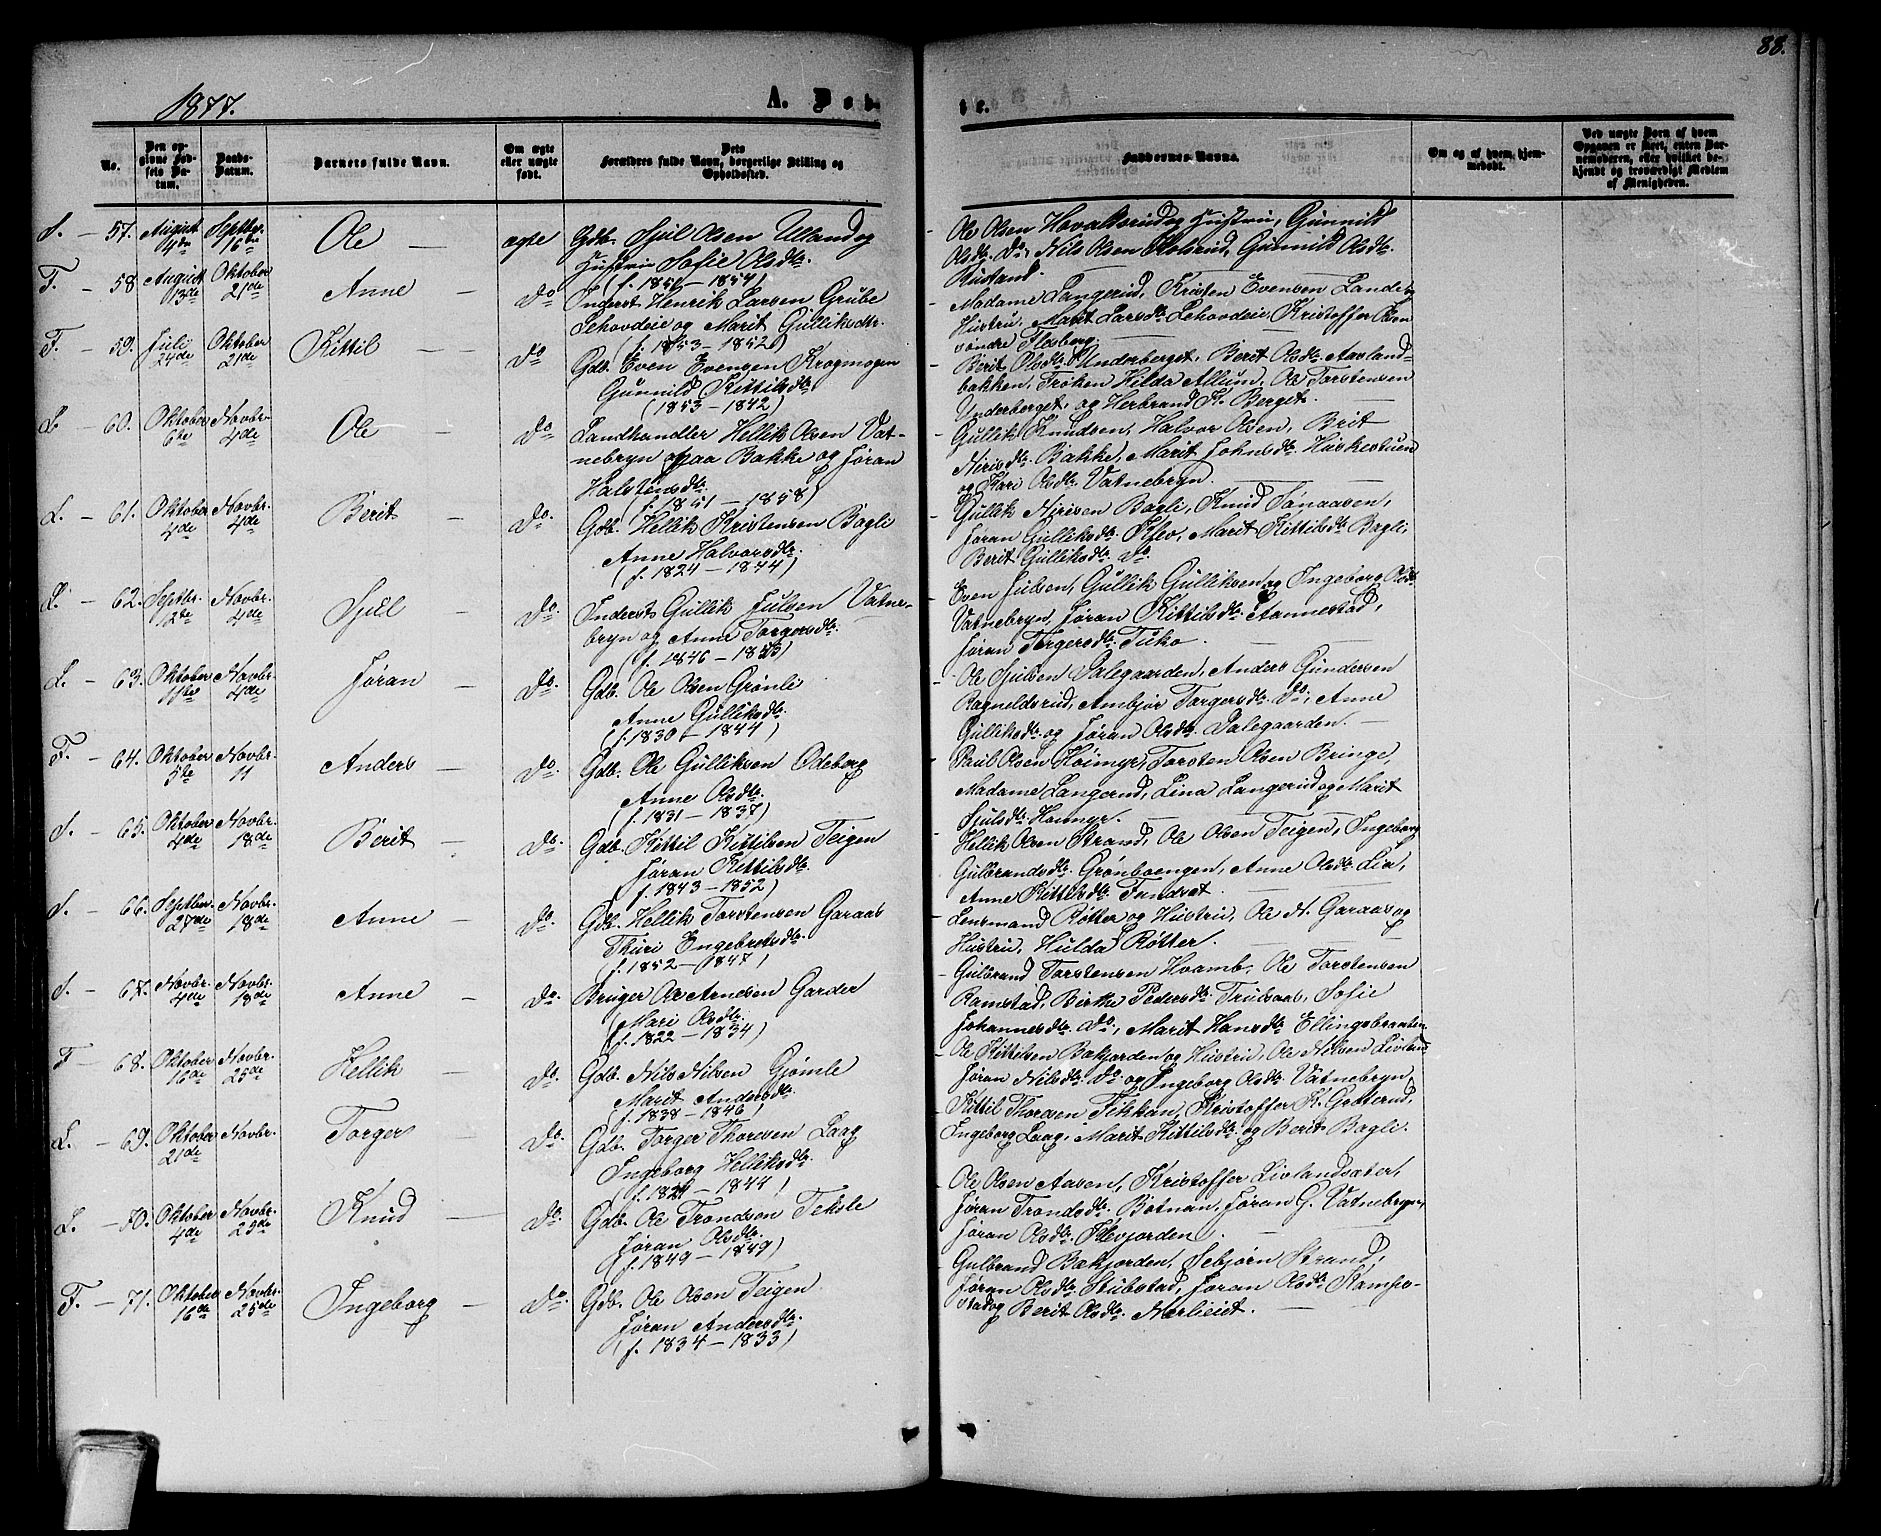 88.
1877.
A. Døb-
te.
No.
Den opgivne Fødsels Datum.
Daabs-Datum.
Barnets fulde Navn.
Om ægte eller uægte født.
Dets Forældres fulde Navn, borgerlige Stilling og Opholdssted.
Faddernes Navne.
Om og af hvem hjemmedøbt.
Ved uægte Børn af hvem Opgaven er skeet, enten Barnemoderen, eller hvilket bekjendt og troværdigt Medlem af Menigheden.
S. — 57. August 4de Septbr. 16de Ole — ægte
Gdb. Sjul Olsen Ulland og
Hustru Sofie Olsdtr.
(f. 1851 — 1854)
Ole Olsen Hovalsrud og Hustru, Gunnild
Olsdtr. Do, Nils Olsen Kolsrud, Gunnild Olsdtr.
Rustand.
F. — 58. August 13de Oktober 21de Anne — Do
Inderst Henrik Larsen Grube
Lehovdeie og Marit Gulliksdtr.
(f. 1853 — 1852)
Madame Langerud, Kristen Evensen Lande og
Hustru, Marit Larsdtr. Lehovdeie, Kristoffer
søndre Flesberg.
F. — 59. Juli 24de Oktober 21de Kittil — Do
Gdb. Even Evensen Kragmogen
Gunnild Kittilsdtr.
(1853 — 1842)
Berit Olsdtr. Underberget, Berit Olsdtr. Aasland-
bakken, Frøken Hilda Allum, Ole Torstensen
Underberget, og Herbrand K. Berget. —
L — 60. Oktober 6te Novbr. 4de Ole Do
Landhandler Hellik Olsen Vat-
nebryn paa Bakke og Jøran
Halstensdtr.
(f. 1851 — 1858)
Gullik Knudsen, Halvor Olsen, Brit
Nirisdtr. Bakke, Marit Johnsdtr. Huskestuen
og Kari Olsdtr. Vatnebryn.
L. — 61. Oktober 4de Novbr. 4de Berit — Do
Gdb. Hellik Kristensen Bagli
Anne Halvorsdtr.
(f. 1824 — 1844)
Gullik Nirisen Bagli, Knud Tønaasen,
Jøran Gulliksdtr. Flev, Marit Kittilsdtr. Bagli,
Berit Gulliksdtr. do
L. — 62. Septbr. 12te Novbr. 4de Sjul Do
Inderst Gullik Julsen Vatne-
bryn og Anne Torgersdtr.
(f. 1846 — 1853)
Even Julsen, Gullik Gulliksen og Ingeborg Olsdtr.
Vatnebryn, Jøran Kittilsdtr. Aannestad,
Jøran Torgersdtr. Tuko. —
L. — 63. Oktober 11te Novbr. 4de Jøran — Do.
Gdb. Ole Olsen Grønli
Anne Gulliksdtr.
(f. 1830 — 1844)
Ole Sjulsen Dalegaarden, Anders Gundersen
Ragneldsrud, Ambjør Torgersdtr. Do, Anne
Gulliksdtr. og Jøran Olsdtr. Dalegaarden. —
F. — 64. Oktober 5te Novbr. 11 Anders — Do.
Gdb. Ole Gulliksen Odeborg
Anne Olsdtr.
(f. 1831 — 1837)
Paul Olsen Høimyr, Torsten Olsen Bringe,
Madame Langerud, Lina Langerud og Marit
Sjulsdtr. Høimyr. —
S. — 65. Oktober 4de Novbr. 18de Berit — Do.
Gdb. Kittil Kittilsen Teigen
Jøran Kittilsdtr.
(f. 1843 — 1852)
Hellik Olsen Strand, Ole Olsen Teigen, Ingeborg
Gulbrandsdtr. Grønboengen, Anne Olsdtr. Lia,
Anne Kittilsdtr. Fundset. —
S. — 66. Septbr. 27de Novbr. 18de Anne — Do.
Gdb. Hellik Torstensen Garaas
Thuri Engebretsdtr.
(f. 1852 — 1847)
Lensmand Røtter og Hustru, Ole H. Garaas og
Hustru, Hulda Røtter. —
S. — 67. Novbr. 4de Novbr. 18de Anne — Do.
Bruger Ole Arnesen Garder
Mari Olsdtr.
(f. 1822 — 1834)
Gulbrand Torstensen Hvamb, Ole Torstensen
Ramstad, Birthe Pedersdtr. Trulsaas, Sofie
Johannesdtr. Do, Marit Hansdtr. Ellingsbraaten
F — 68. Oktober 16de Novbr. 25de Hellik — Do.
Gdb. Nils Nilsen Gjømle
Marit Andersdtr.
(f. 1838 — 1846)
Ole Kittilsen Bækjorden og Hustru, Ole Nilsen Livland
Jøran Nilsdtr. Do og Ingeborg Olsdtr. Vatnebryn
L. — 69. Oktober 21de Novbr. Torger — Do.
Gdb. Torger Thoresen Laag
Ingeborg Helliksdtr.
— 1844)
Kittil Thoresen Fikkan, Kristoffer K. Gotterud,
Ingeborg Laag, Marit Kittilsdtr. og Berit Bagli.
L. — 70. Oktober 4de Novbr. 25de Knud — Do.
Gdb. Ole Trondsen Teksle
Jøran Olsdtr.
(f. 1849 — 1849)
Ole Olsen Aasen, Kristoffer Livlandsæter,
Jøran Trondsdtr. Botnan, Jøran G. Vatnebryn,
Jøran Olsdtr. Flevjorden. —
F. — 71. Oktober 16de Novbr. 25de Ingeborg — Do.
Gdb. Ole Olsen Teigen
Jøran Andersdtr.
(f. 1834 — 1833)
Gulbrand Bækjorden, Sebjørn Strand,
Jøran Olsdtr. Stubstad, Jøran Olsdtr. Kampe-
stad og Berit Olsdtr. Nerlieiet. —